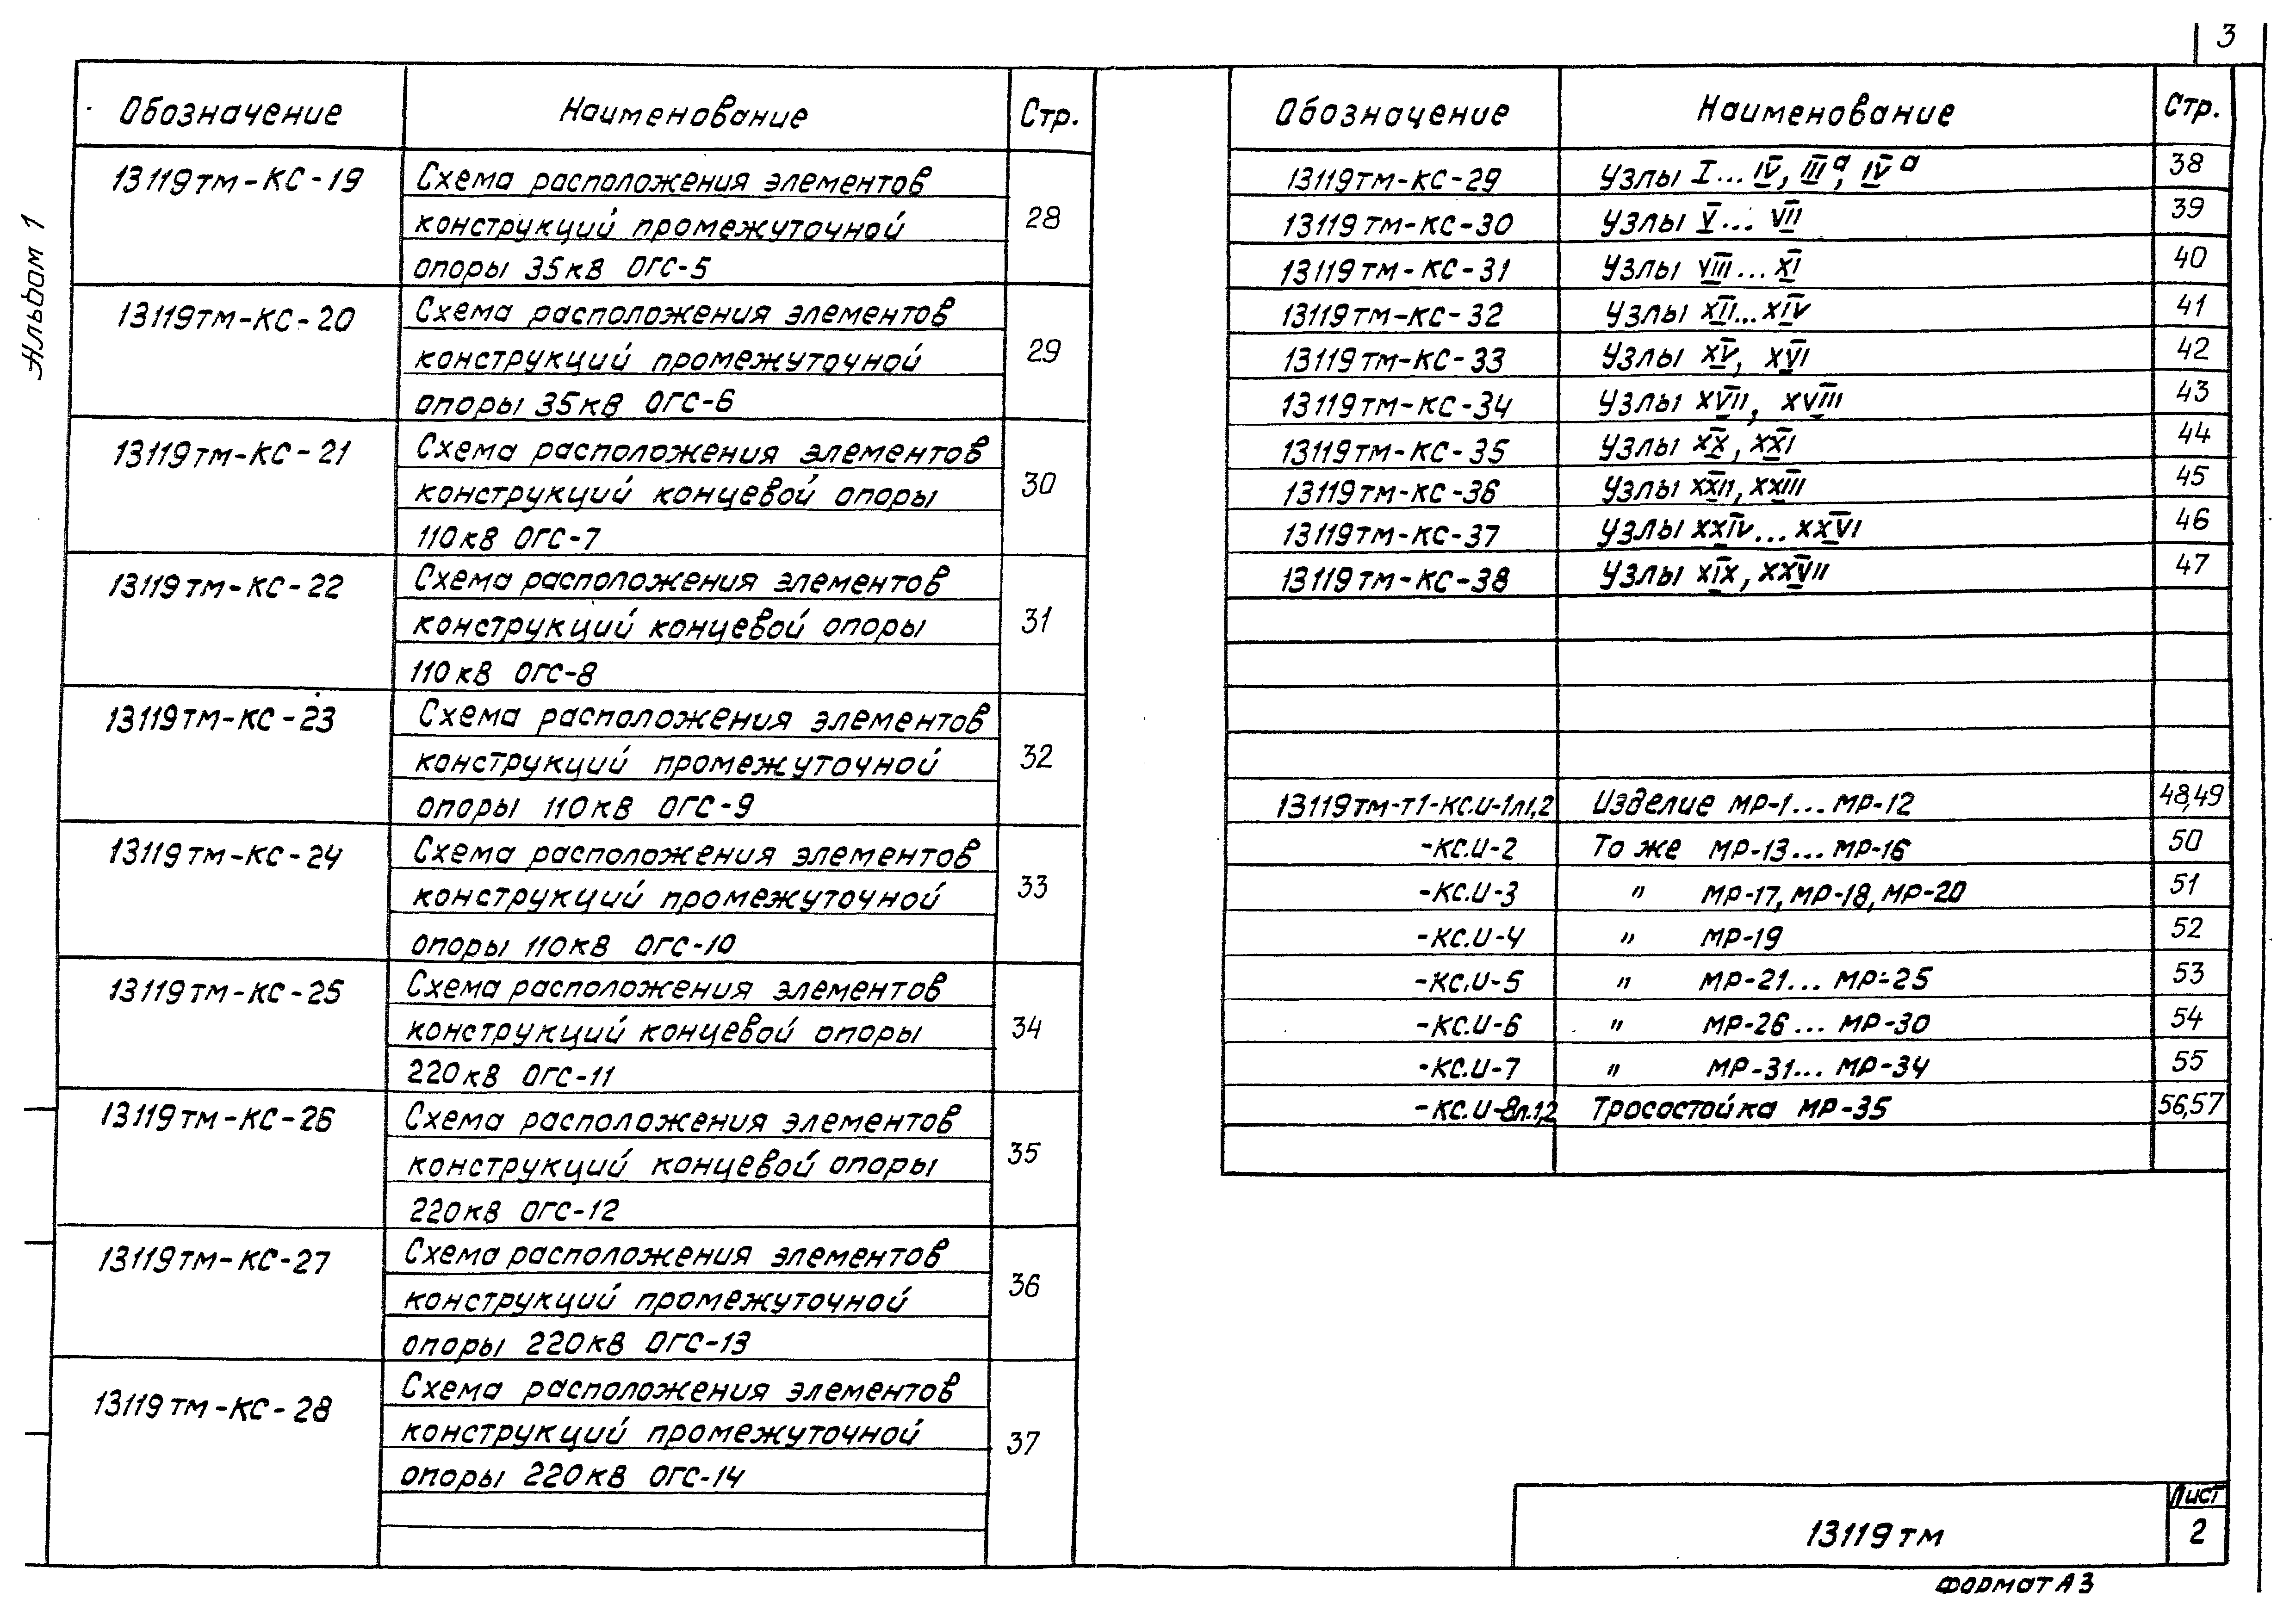 3
Альбом 1
Обозначение Наименование Стр.
13119тм-КС-19 Схема расположения элементов
конструкций промежуточной 28
опоры 35кв ОГС-5
13119тм-КС-20 Схема расположения элементов
конструкций промежуточной 29
опоры 35кв ОГС-6
13119тм-КС-21 Схема расположения элементов
конструкций концевой опоры 30
110кв ОГС-7
13119тм-КС-22 Схема расположения элементов
конструкций концевой опоры 31
110кв ОГС-8
13119тм-КС-23 Схема расположения элементов
конструкций промежуточной 32
опоры 110кв ОГС-9
13119тм-КС-24 Схема расположения элементов
конструкций промежуточной 33
опоры 110кв ОГС-10
13119тм-КС-25 Схема расположения элементов
конструкций концевой опоры 34
220кв ОГС-11
13119тм-КС-26 Схема расположения элементов
конструкций концевой опоры 35
220кв ОГС-12
13119тм-КС-27 Схема расположения элементов
конструкций промежуточной 36
опоры 220кв ОГС-13
13119тм-КС-28 Схема расположения элементов
конструкций промежуточной 37
опоры 220кв ОГС-14
Обозначение Наименование Стр.
13119тм-КС-29 Узлы I...IV, IIIа, IVа 38
13119тм-КС-30 Узлы V... VII 39
13119тм-КС-31 Узлы VIII...XI 40
13119тм-КС-32 Узлы XII...XIV 41
13119тм-КС-33 Узлы XV, XVI 42
13119тм-КС-34 Узлы XVII, XVIII 43
13119тм-КС-35 Узлы XX, XXI 44
13119тм-КС-36 Узлы XXII, XXIII 45
13119тм-КС-37 Узлы XXIV...XXVI 46
13119тм-КС-38 Узлы XIX, XXVII 47
13119тм-т1-КС.И-1л1,2 Изделие МР-1...МР-12 48,49
-КС.И-2 То же МР-13...МР-16 50
-КС.И-3 " МР-17, МР-18, МР-20 51
-КС.И-4 " МР-19 52
-КС.И-5 " МР-21... МР-25 53
-КС.И-6 " МР-26... МР-30 54
-КС.И-7 " МР-31... МР-34 55
-КС.И-8л.1,2 Тросостойка МР-35 56,57
13119тм
Лист
2
Формат А3